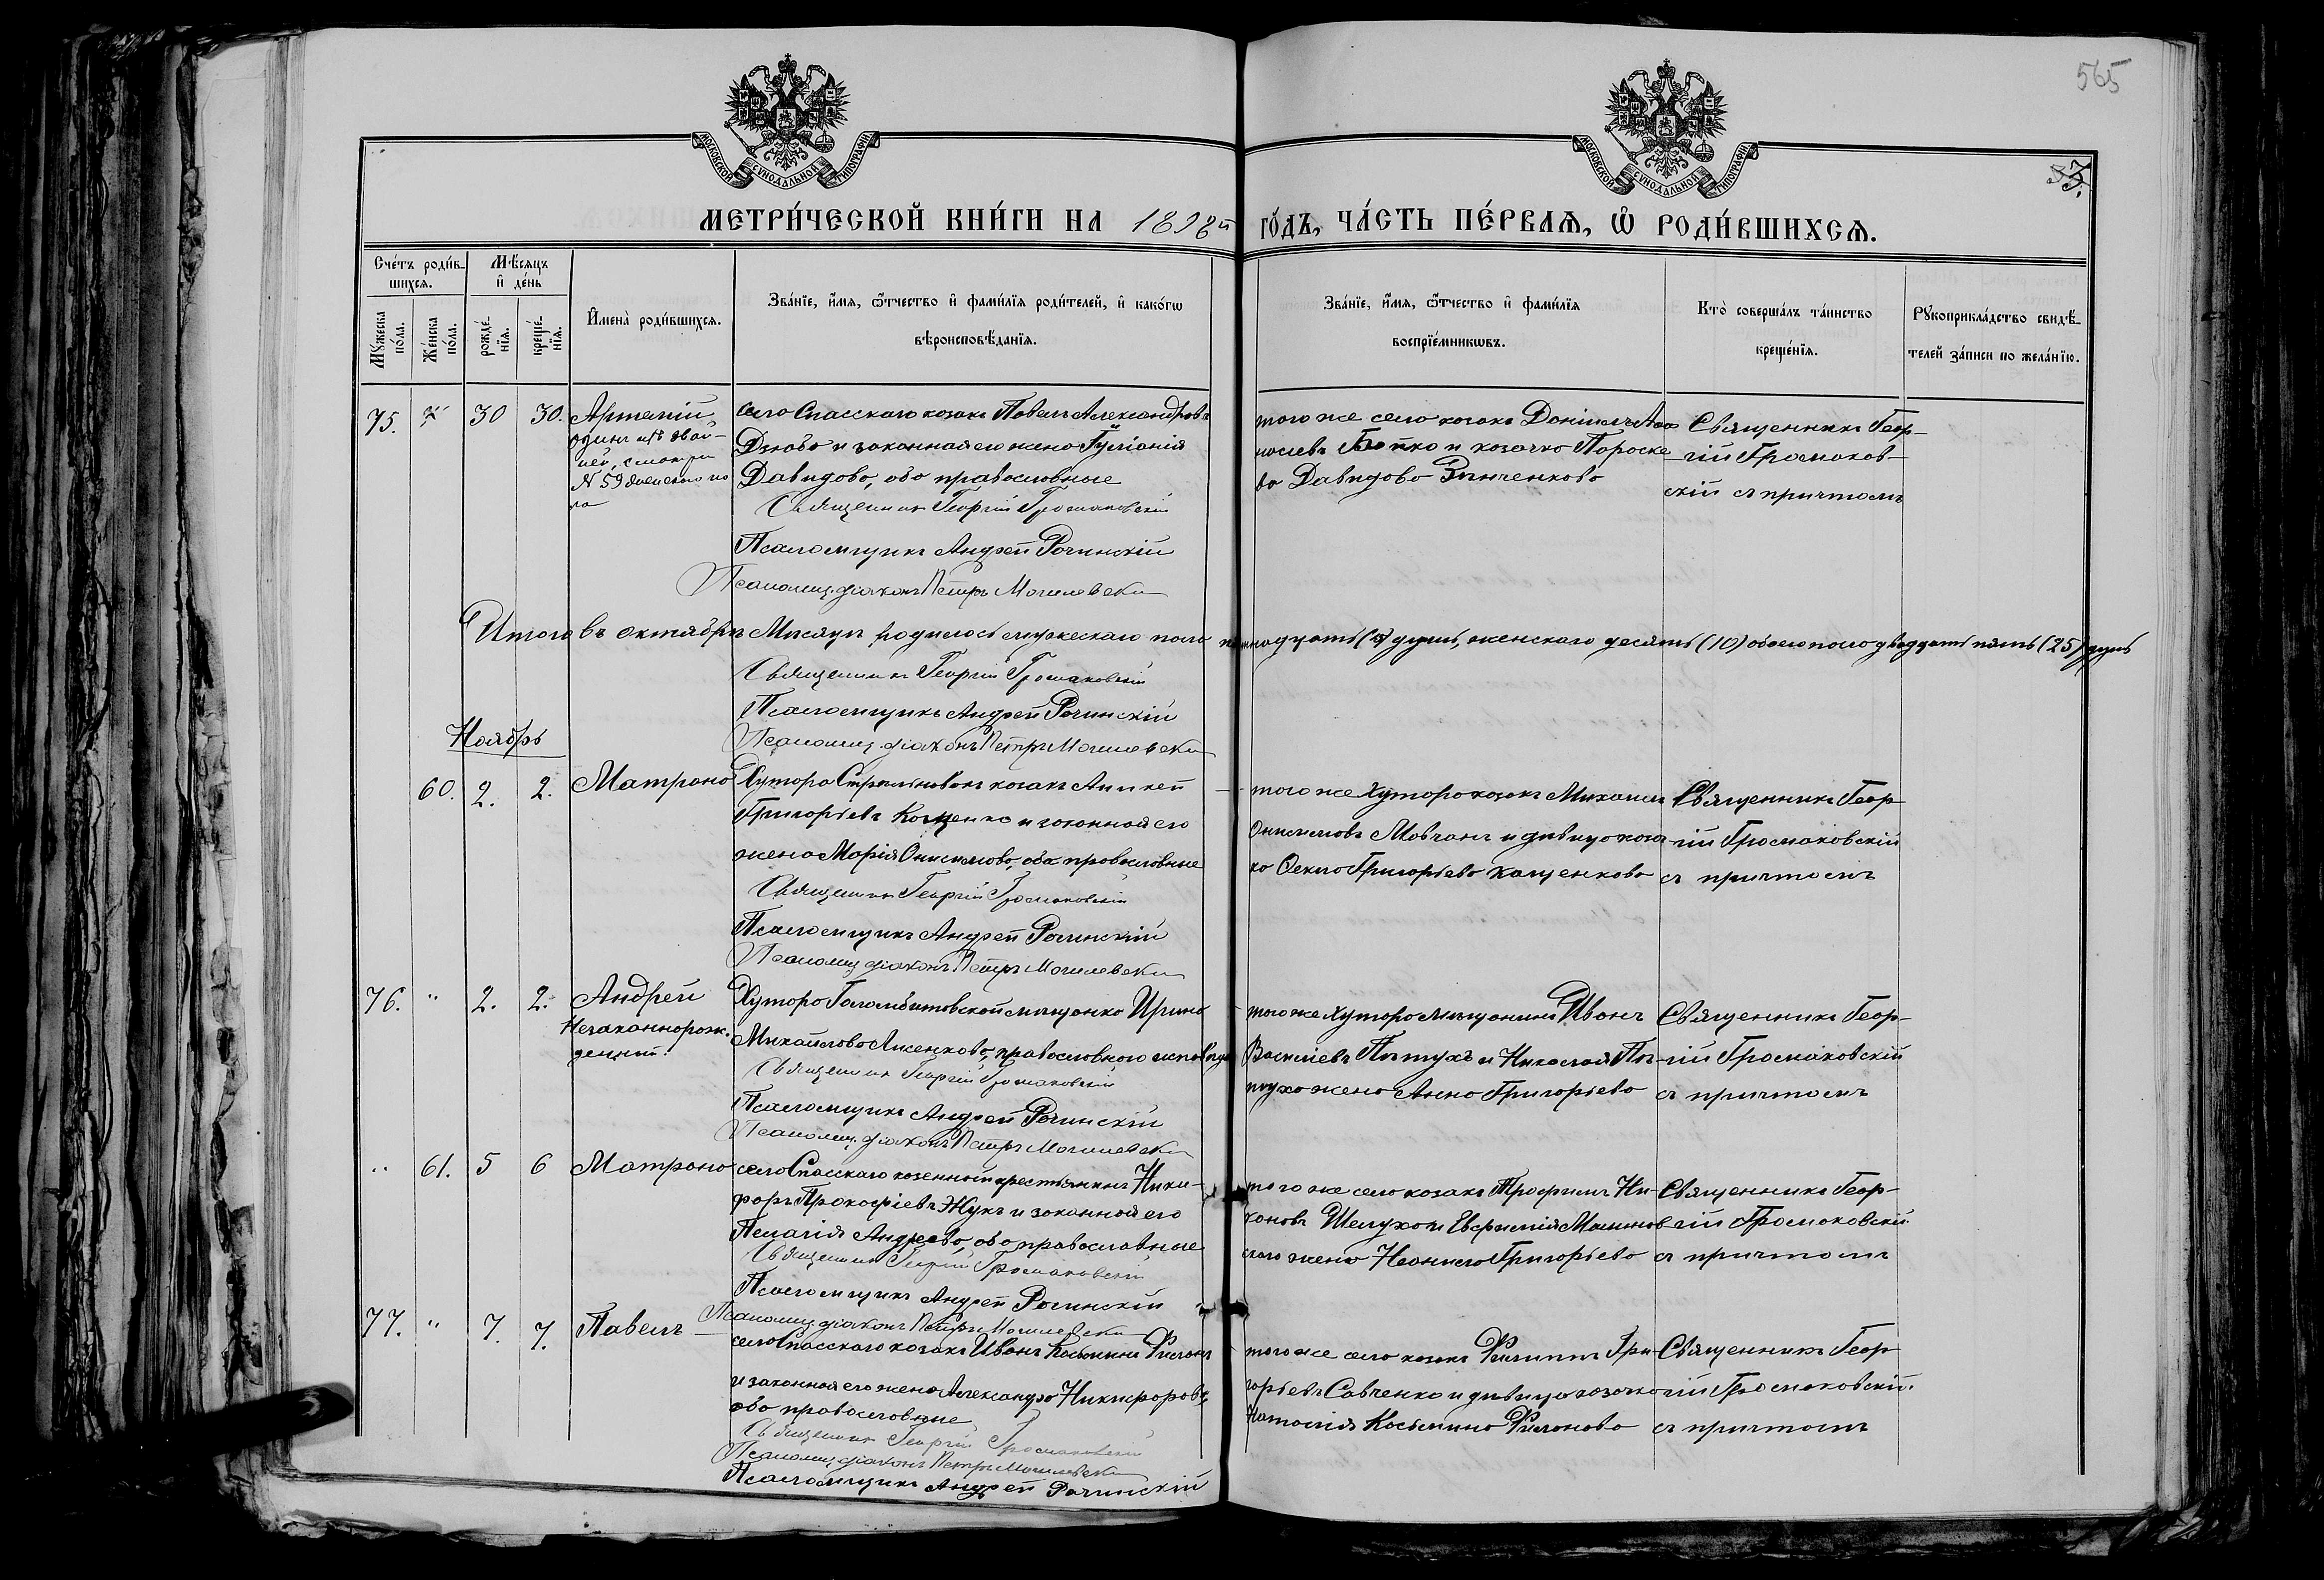 565
МОСКОВСКОЙ СѴНОДАЛЬНОЙ ТИПОГРАФІИ
МОСКОВСКОЙ СѴНОДАЛЬНОЙ ТИПОГРАФІИ
МЕТРИ́ЧЕСКОЙ КНИ́ГИ НА 1898й ГО́ДЪ, ЧА́СТЬ ПЕ́РВАѦ, Ѡ҆ РОДИ́ВШИХСѦ.
Сче́тъ роди́в-
шихсѧ.
Мѣ́сѧцъ
и҆ де́нь
Мꙋжеска по́ла.
Же́нска по́ла.
рожде́-
нїѧ.
креще́-
нїѧ.
И҆мена̀ роди́вшихсѧ.
Зва́нїе, и҆́мѧ, ѻ҆́тчество и҆ фами́лїѧ роди́телей, и҆ како́гѡ
вѣроисповѣ́данїѧ.
Зва́нїе, и҆́мѧ, ѻ҆́тчество и҆ фами́лїѧ
воспрїе́мникѡвъ.
Кто̀ соверша́лъ та́инство
креще́нїѧ.
Рꙋкоприкла́дство свидѣ́-
телей за́писи по жела́нїю.
75. 30 30. Артемій
одинъ изъ двой-
ней, смотри
№ 59 женского по
ла
села Спасскаго козакъ Павелъ Александровъ
Дзюба и законная его жена Іуліанія
Давидова, оба православные
Священникъ Георгій Громаковскій
Псаломщикъ Андрей Рочинскій
Псаломщ. діаконъ Петръ Могилевскій
того же села козакъ Даніилъ
Бойко и козачка Параске
ва Давидова Зинченкова
Священникъ Геор-
гій Громаков-
скій съ причтомъ
Итого въ октябрѣ мѣсяцѣ родилось мужескаго пола пятнадцать душъ, женскаго десять (10) обоего пола двадцать пять (25) душъ
Священникъ Георгій Громаковскій
Псаломщикъ Андрей Рочинскій
Псаломщ. діаконъ Петръ Могилевскій
Ноябрь
60. 2. 2. Матрона
Хутора козакъ
Григорьевъ Кащенко и законная его
жена Марія Онисимова, оба православные
Священникъ Георгій Громаковскій
Псаломщикъ Андрей Рочинскій
Псаломщ. діаконъ Петръ Могилевскій
того же хутора козакъ Михаилъ
Онисимовъ Мовчанъ и дѣвица коза
ка Григорьева Кащенкова
Священникъ Геор-
гій Громаковскій
съ причтомъ
76. " 2. 2. Андрей
Незаконнорож-
денный.
Хутора мѣщанка Ирина
Михайлова Лисенкова, православного исповѣда
Священникъ Георгій Громаковскій
Псаломщикъ Андрей Рочинскій
Псаломщ. діаконъ Петръ Могилевскій
того же хутора мѣщанинъ Иванъ
Василіевъ Пѣтухъ и Николая Пѣ-
туха жена Анна Григорьева
Священникъ Геор-
гій Громаковскій
съ причтомъ
" 61. 5 6 Матрона
села Спасскаго козенный крестьянинъ Ники-
форъ Прокофіевъ Жукъ и законная его
Пелагія Андреева, оба православные
Священникъ Георгій Громаковскій
Псаломщикъ Андрей Рочинскій
Псаломщ. діаконъ Петръ Могилевскій
того же села козакъ Трофимъ Ни-
коновъ Шелухо и
жена Григорьева
Священникъ Геор-
гій Громаковскій
съ причтомъ
77. " 7. 7. Павелъ
села Спасскаго козакъ Иванъ Косьминъ Филонъ
и законная его жена Александра Никифорова,
оба православные
Священникъ Георгій Громаковскій
Псаломщ. діаконъ Петръ Могилевскій
Псаломщикъ Андрей Рочинскій
того же села козакъ Филиппъ Гри-
горьевъ Савченко и дѣвица козачка
Наталія Косьмина Филонова
Священникъ Геор-
гій Громаковскій.
съ причтомъ